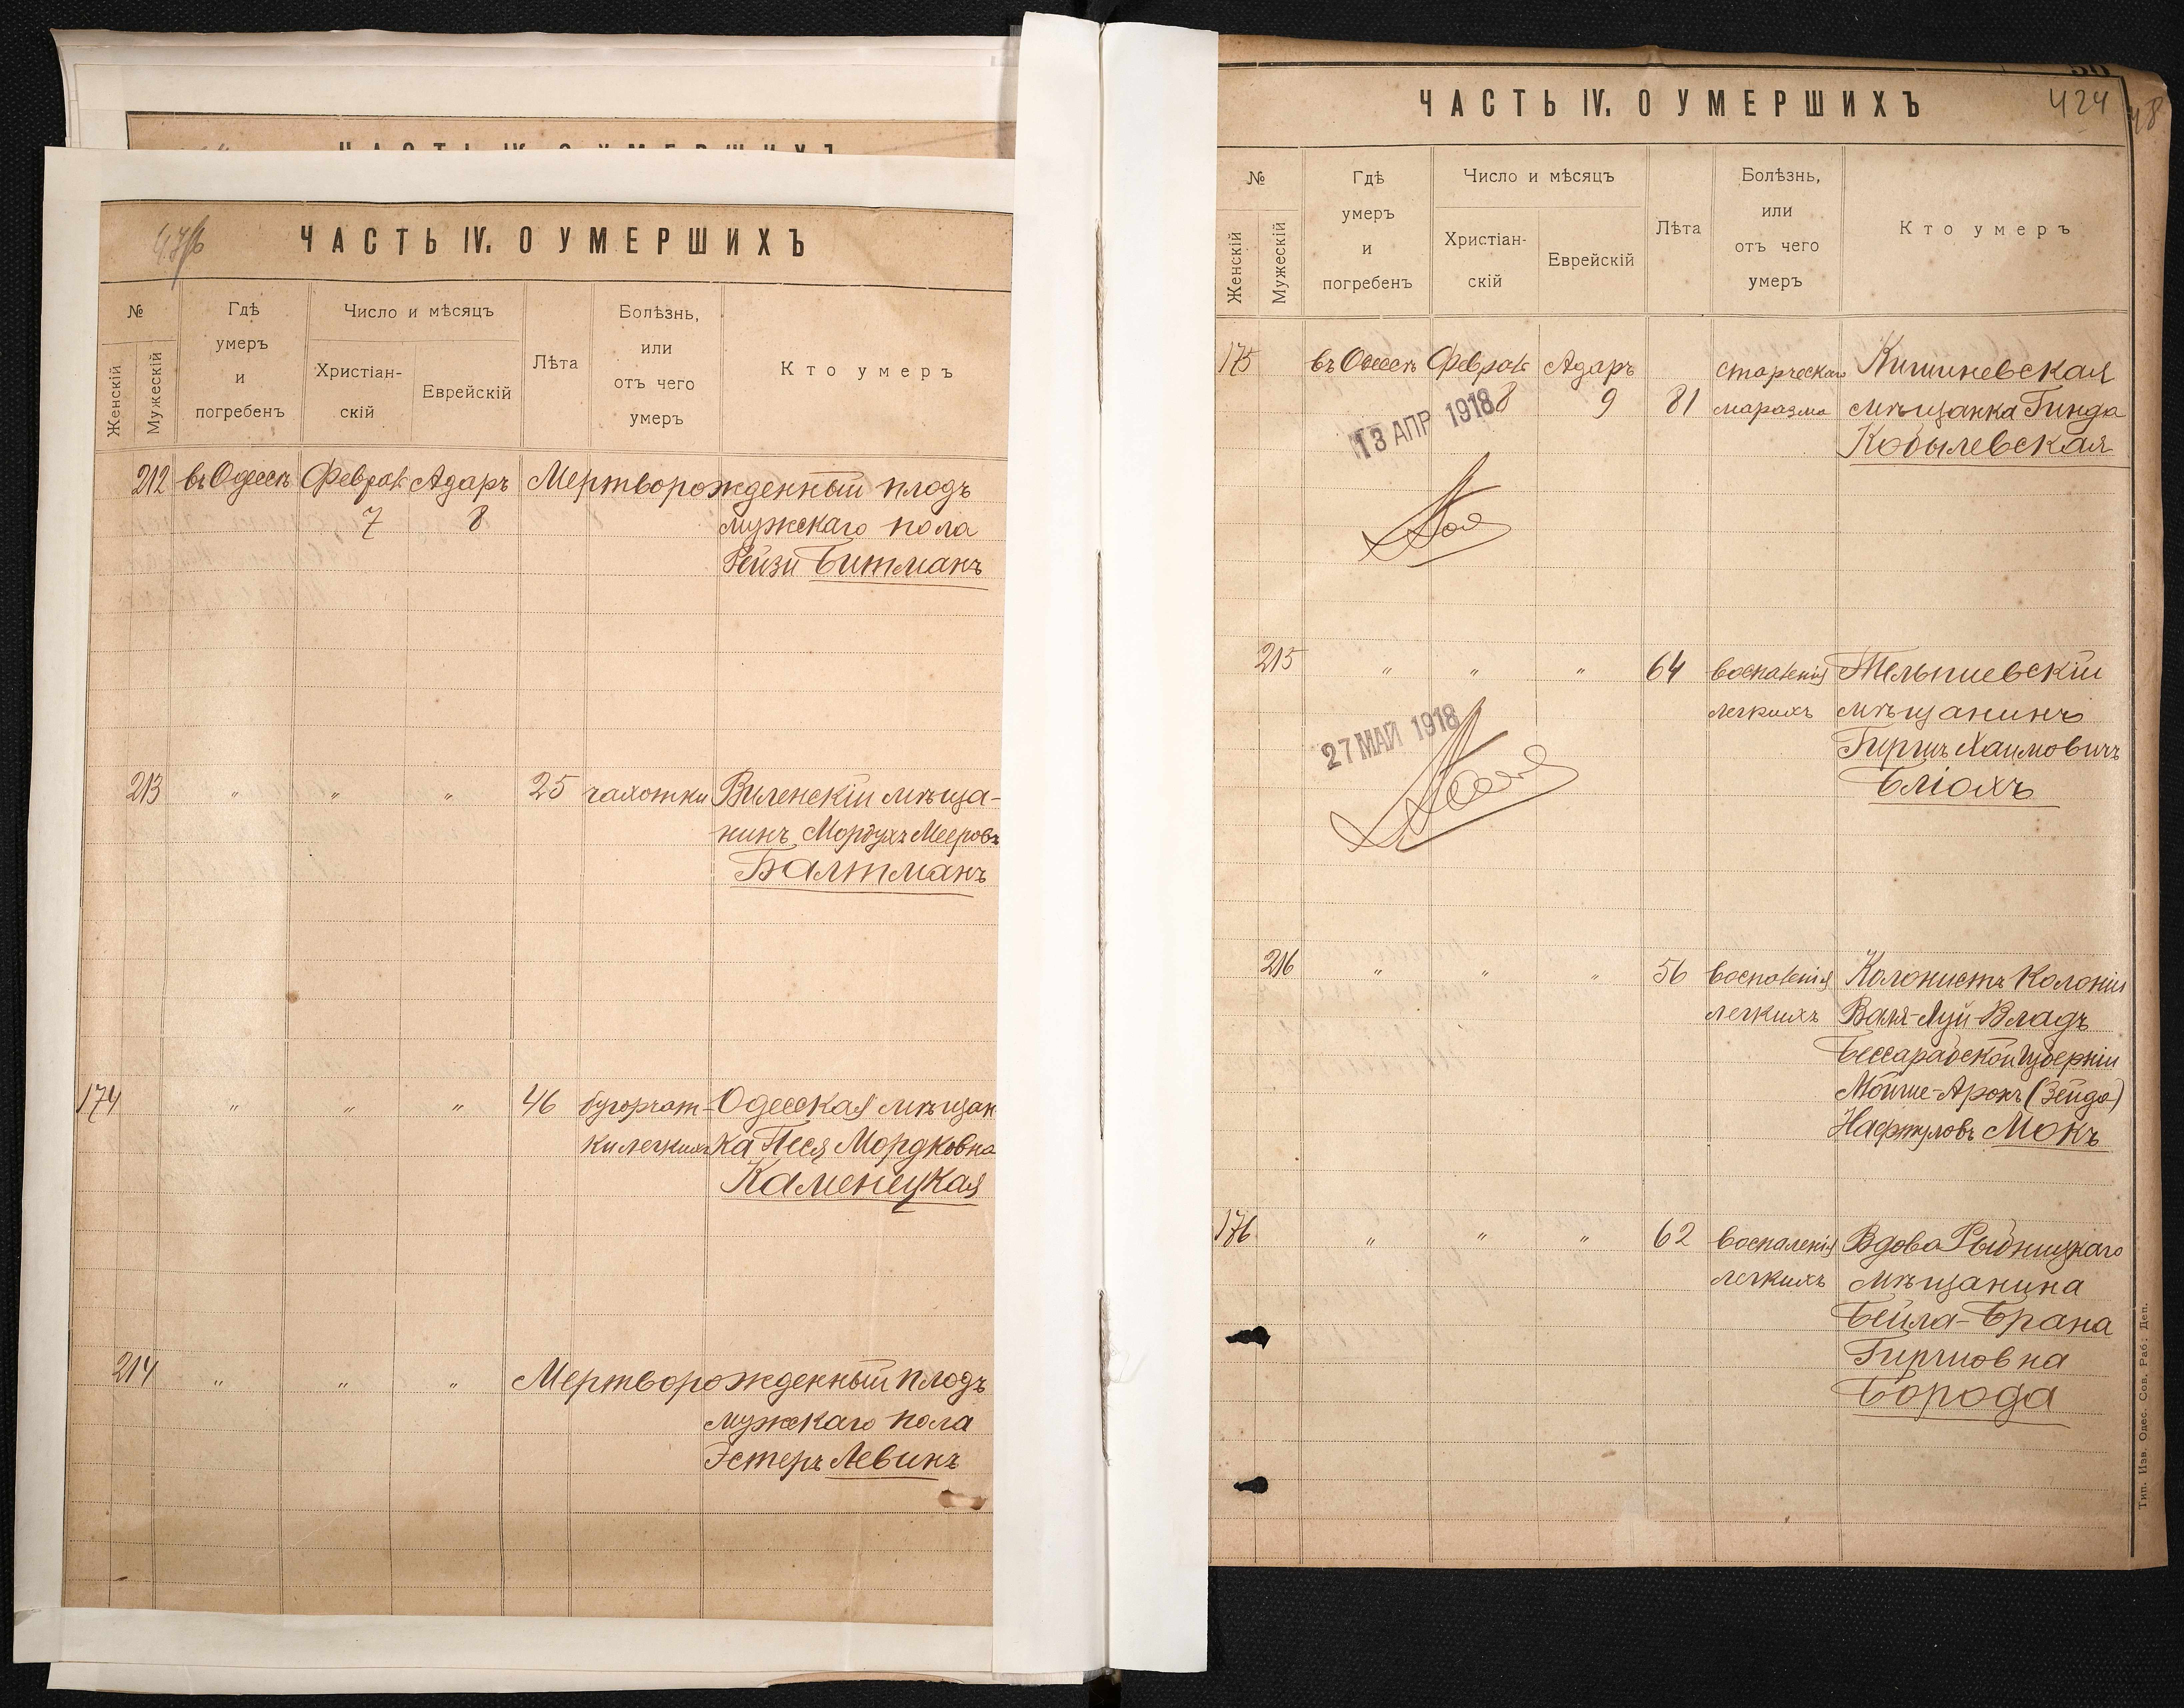 ЧАСТЬ IV. О УМЕРШИХЪ
№
Женскій
Мужескій
Гдѣ
умеръ
и
погребенъ
Число и мѣсяцъ
Христіан-
скій
Еврейскій
Лѣта
Болѣзнь,
или
отъ чего
умеръ
Кто умеръ
212 въ Одессѣ Феврал Адаръ Мертворожденный плодъ
7 8 мужескаго пола
Рейзи Битманъ
213 " " " 25 чахотки Виленскій мѣща-
нинъ Мордухъ Мееровъ
Балтманъ
174 " " " 46 бугорчат- Одесская мѣщан
ки легкихъ ка Песя Мордковна
Каменецкая
214 " " " Мертворожденный плодъ
мужескаго пола
Эстеръ Левинъ
ЧАСТЬ IV. О УМЕРШИХЪ
424
48
№
Женскій
Мужескій
Гдѣ
умеръ
и
погребенъ
Число и мѣсяцъ
Христіан-
скій
Еврейскій
Лѣта
Болѣзнь,
или
отъ чего
умеръ
Кто умеръ
175 въ Одессѣ Феврал Адаръ старческаго Кишиневская
8 9 81 маразма мѣщанка Гинда
13 АПР 1918
Кобылевская
215 " " " 64 воспаленія Тельшевскій
легкихъ мѣщанинъ
27 МАЙ 1918
Гиршъ Хаимовичъ
Бліохъ
216 " " " 56 воспаленія Колонистъ Колоніи
легкихъ Валя-Луй-Владъ
Бессарабской губерніи
Мойше-Аронъ (Зейда)
Нафтуловъ Мокъ
176 " " " 62 воспаленія Вдова Рыбницкаго
легкихъ мѣщанина
Бейла-Брана
Гиршовна
Борода
Тип. Изв. Одес. Сов. Раб. Деп.